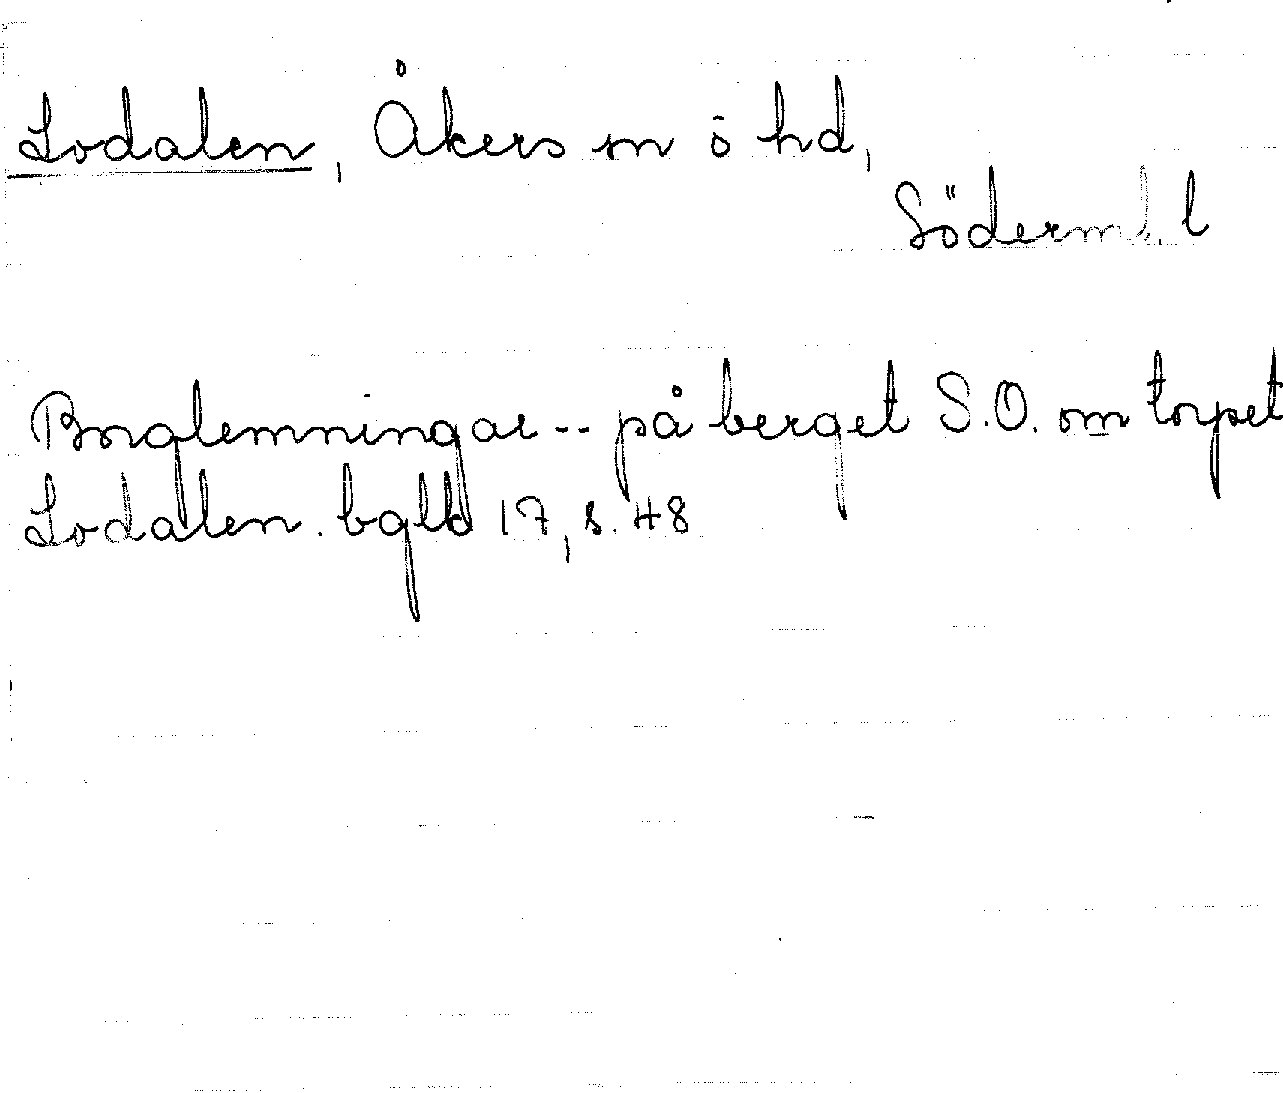 Lodalen, Åkers sn ö hd,
Söderml. l
Borglemningar -- på berget S.O. om torpet
Lodalen. bglb 17, s. 48